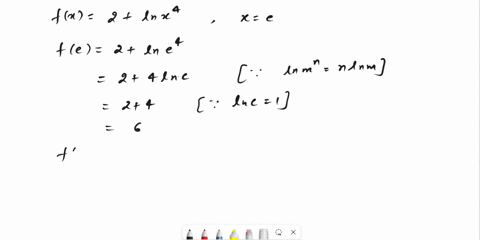 f(x) = 2 + ln x⁴ , x = e
f(e) = 2 + ln e⁴
= 2 + 4 ln e [∵ ln mⁿ = n ln m]
= 2+4 [∵ ln e = 1]
= 6
f'